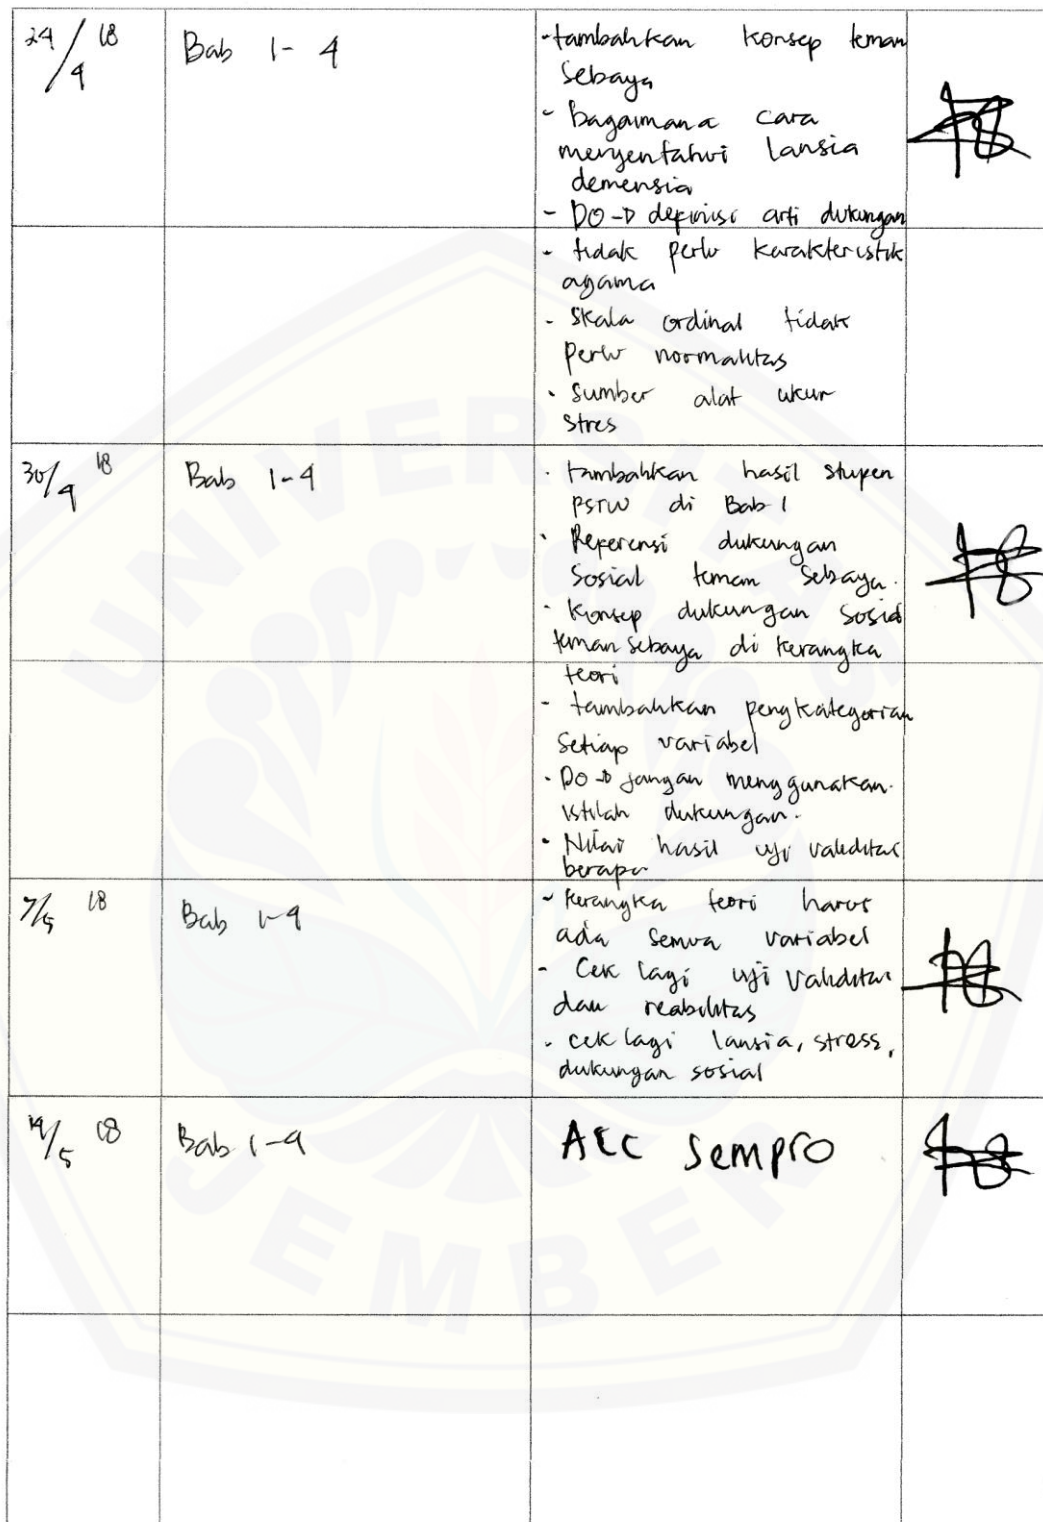 24/4 18
Bab 1-4
- tambahkan konsep teman
sebaya
- bagaimana cara
mengentahui lansia
demensia
- DO → definisi arti dukungan
- tidak perlu karakteristik
agama
- Skala ordinal tidak
perlu normalitas
- Sumber alat ukur
stres
30/4 18
Bab 1-4
- tambahkan hasil stupen
PSTW di Bab 1
- Referensi dukungan
Sosial teman sebaya.
- Konsep dukungan sosial
teman sebaya di kerangka
teori
- tambahkan pengkategorian
setiap variabel
- DO → jangan menggunakan
istilah dukungan.
- Nilai hasil uji validitas
berapa
7/5 18
Bab 1-4
- kerangka teori harus
ada semua variabel
- Cek lagi uji validitas
dan reabilitas
- cek lagi lansia, stress,
dukungan sosial
14/5 18
Bab 1-4
ACC Sempro
UNIVERSITAS
JEMBER